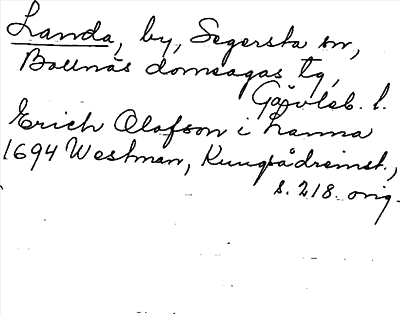 Landa, by, Segersta sn,
Bollnäs domsagas tg,
Gävleb. l.
Erich Olofson i Lanna
1694 Westman, Kungsådreinst.,
s. 218. orig.